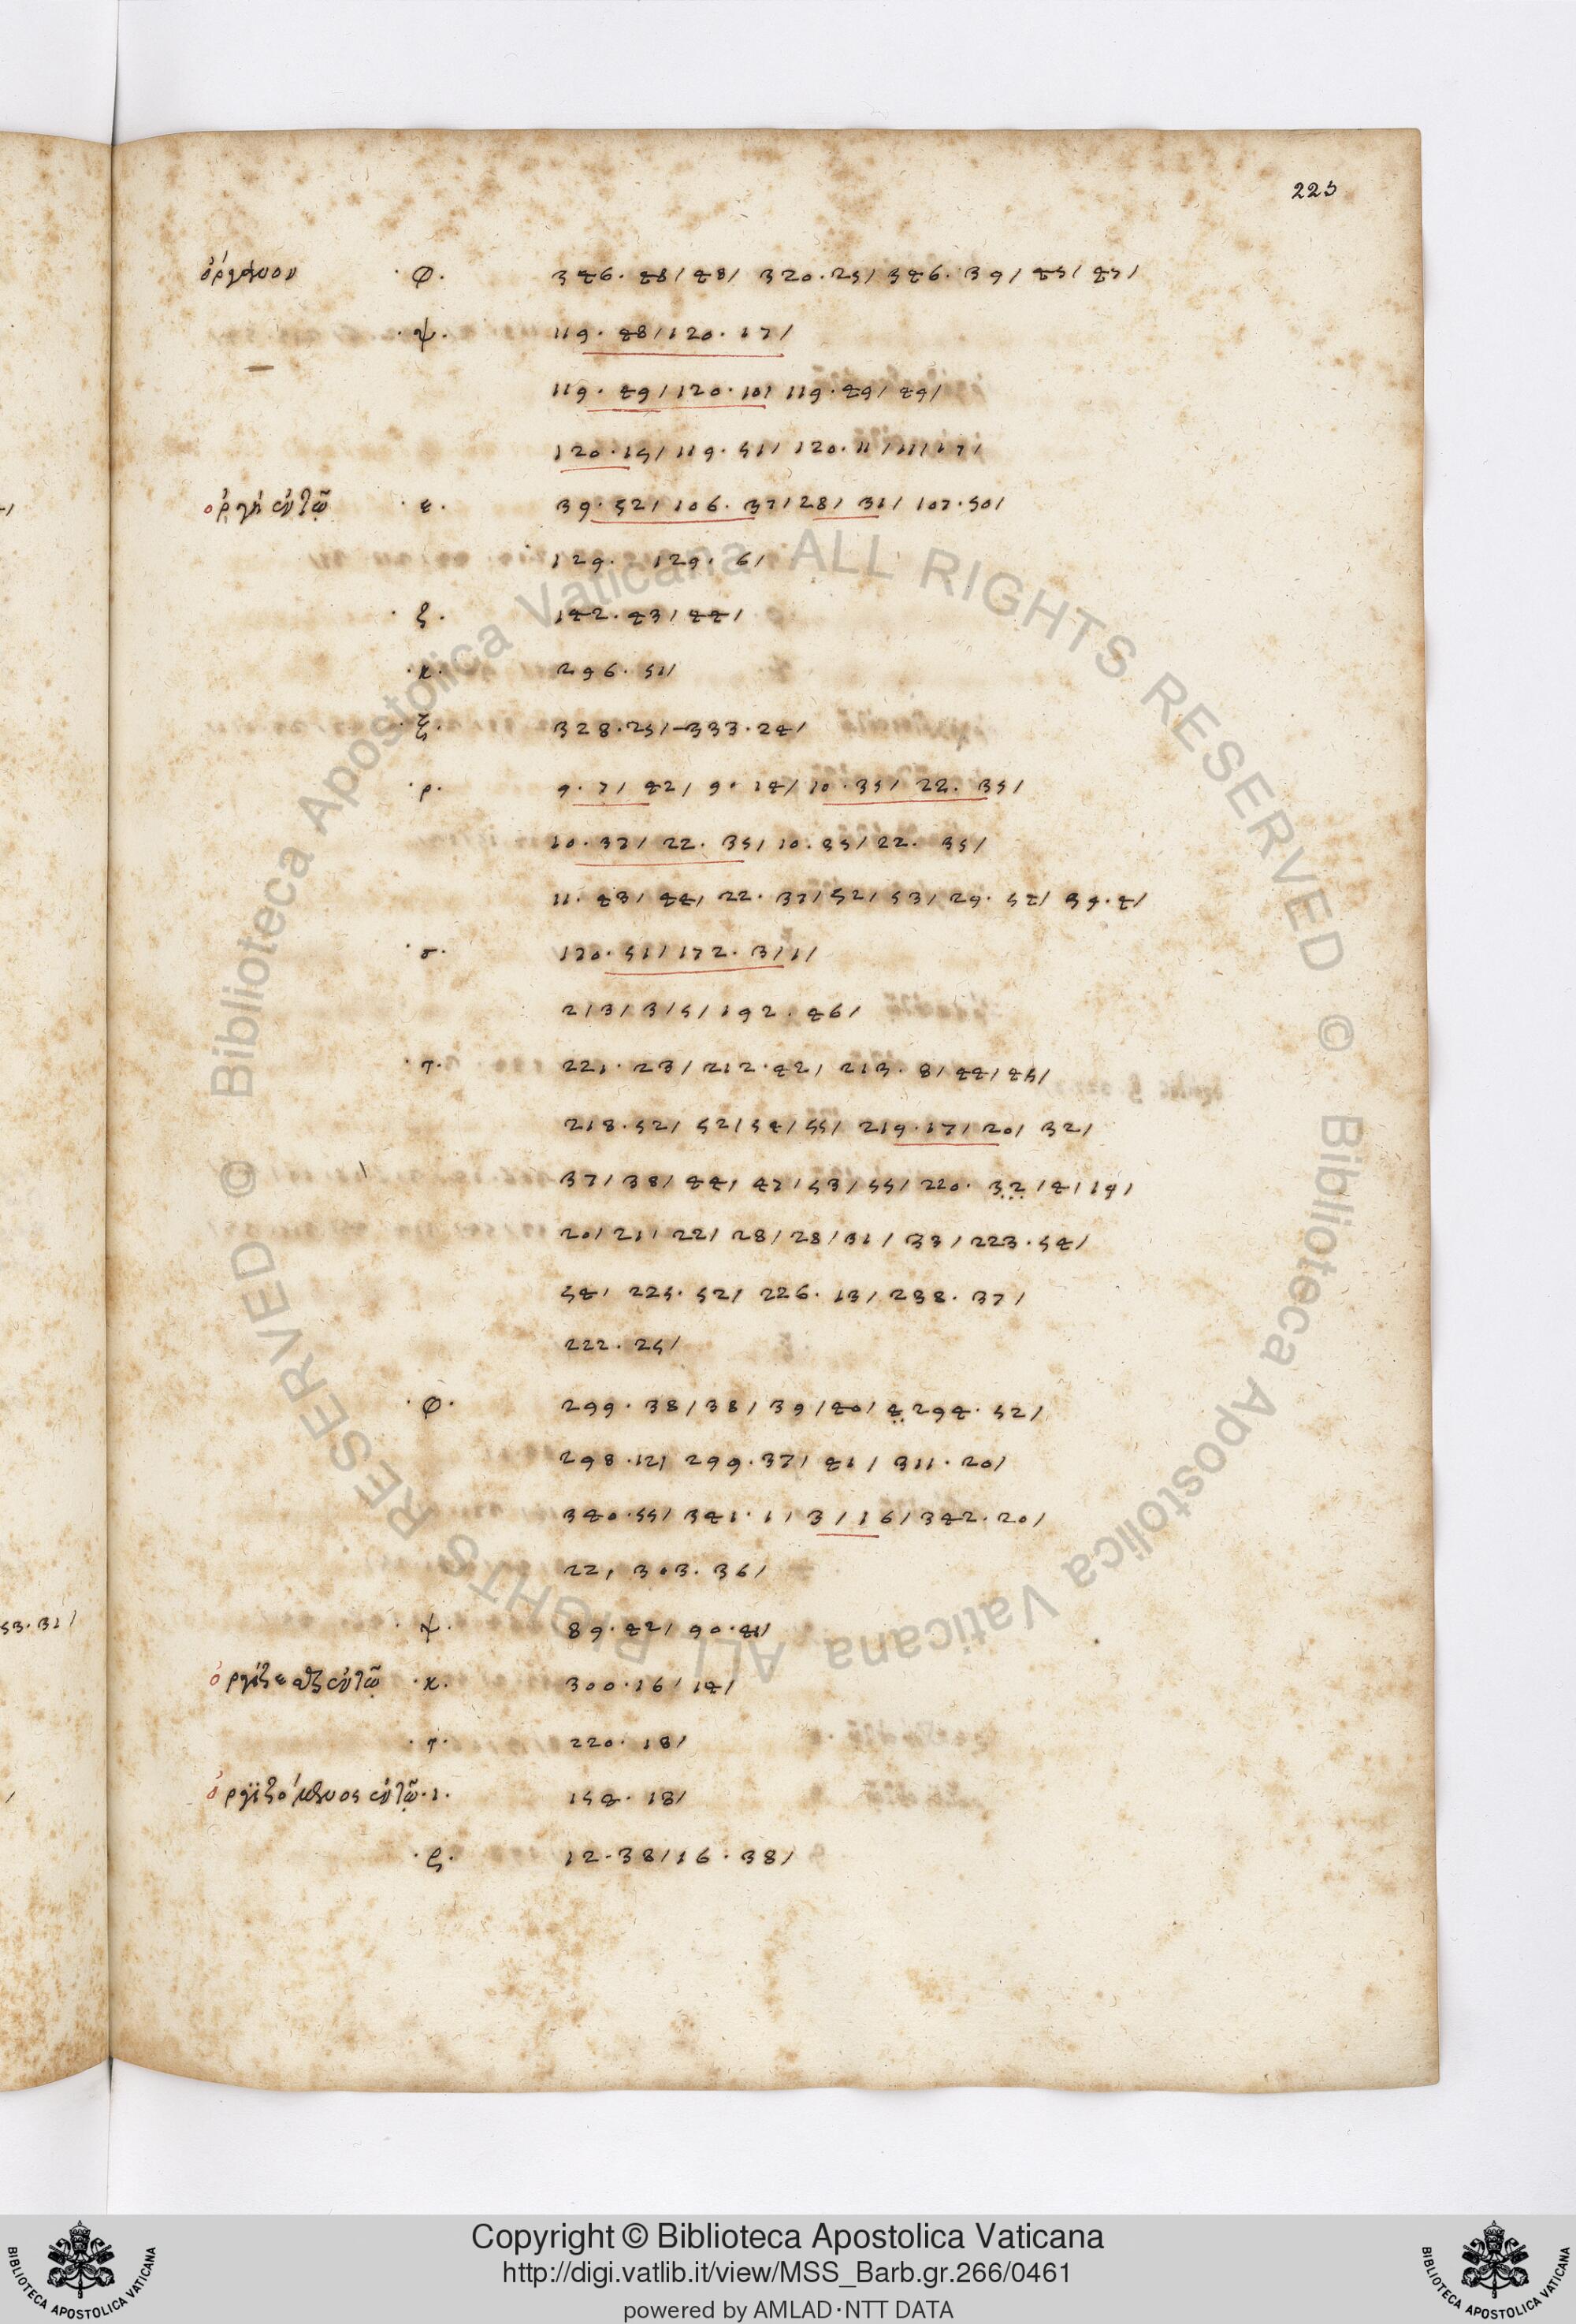 223
ὄργανον ·φ· 346. 48/ 48/ 320. 25/ 346. 39/ 45/ 45/
·ψ· 119. 48/ 120. 17/
119. 49/ 120. 10/ 119. 49/ 49/
120. 15/ 119. 51/ 120. 11/ 11/ 17/
ὀργὴ ἐν τῷ ·ε· 39. 52/ 106. 37/ 28/ 31/ 107. 50/
129. 129. 6/
·ζ· 142. 43/ 44/
·κ· 296. 51/
·ξ· 328. 25/ 333. 24/
·ρ· 9. 7/ 42/ 9. 14/ 10. 35/ 22. 35/
10. 37/ 22. 35/ 10. 35/ 22. 35/
11. 43/ 44/ 22. 37/ 52/ 53/ 29. 54/ 39. 4/
·σ· 120. 51/ 172. 3/ 1/
213/ 3/ 5/ 192. 46/
·τ· 221. 23/ 212. 42/ 213. 8/ 44/ 45/
218. 52/ 52/ 54/ 55/ 219. 17/ 20/ 32/
37/ 38/ 44/ 47/ 53/ 55/ 220. 32/ 4/ 19/
20/ 21/ 22/ 28/ 28/ 31/ 33/ 223. 54/
54/ 225. 52/ 226. 13/ 238. 37/
222. 25/
·φ· 299. 38/ 38/ 39/ 40/ 4 294. 52/
298. 12/ 299. 37/ 41/ 311. 20/
340. 55/ 341. 1/ 3/ 16/ 342. 20/
22/ 303. 36/
·ψ· 89. 42/ 90. 41/
ὀργίζεσθαι ἐν τῷ ·κ· 300. 16/ 14/
·τ· 220. 18/
ὀργϊζόμενος ἐν τῷ ·ι· 154. 18/
12. 38/ 16. 38/
53. 31/
© Biblioteca Apostolica Vaticana ALL RIGHTS RESERVED © Biblioteca Apostolica Vaticana ALL RIGHTS RESERVED
Copyright © Biblioteca Apostolica Vaticana
http://digi.vatlib.it/view/MSS_Barb.gr.266/0461
powered by AMLAD·NTT DATA
BIBLIOTECA APOSTOLICA VATICANA
BIBLIOTECA APOSTOLICA VATICANA